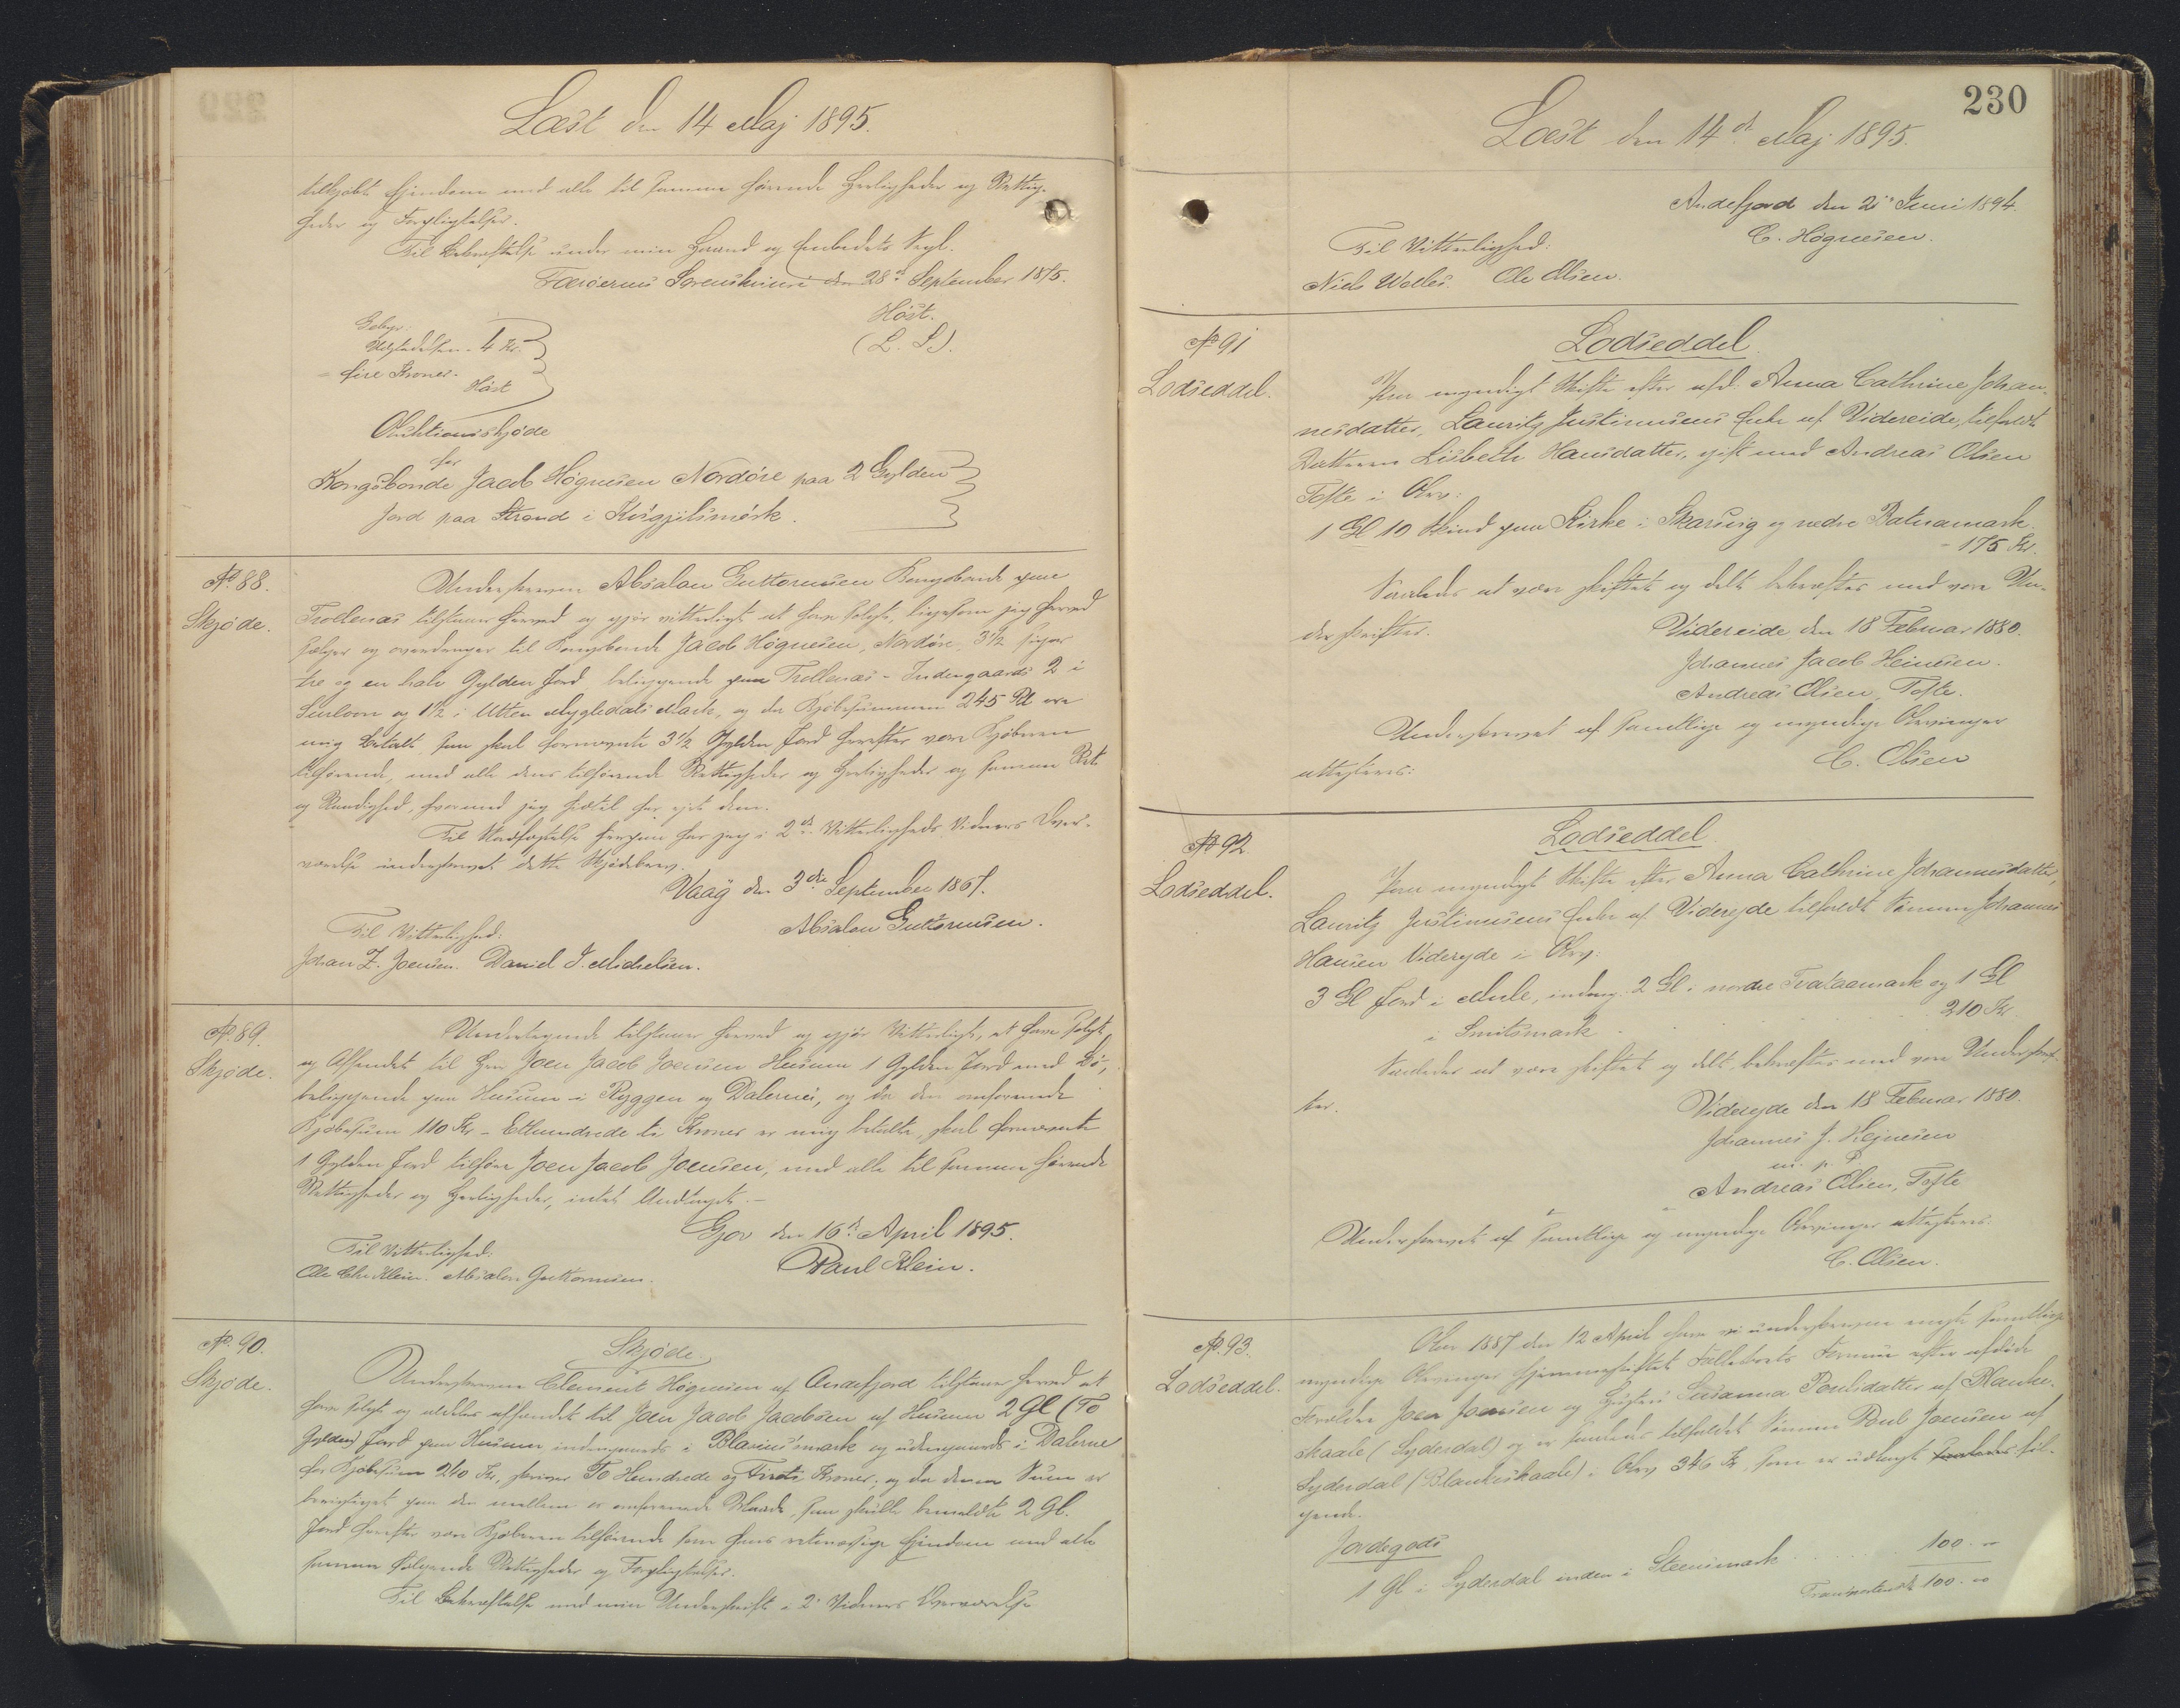 Læst den 14 Maj 1895.
tilkjøbte Ejendom med alle til samme hørende Herligheder og Rettig-
heder og Forpligtelser.
Til Bekræftelse under min Haand og Embedets Segl.
Færøernes Sorenskriveri den 28de September 1875.
Høst.
(L. S.).
Gebyr:
Udstedelsen - 4 Kr.
= fire Kroner.
Høst
Auktionsskjøde
for
Kongsbonde Jacob Høgnesen Nordøre paa 2 Gylden
Jord paa Strond i Kvigjilsmørk.
No 88.
Skjøde.
Underskreven Absalon Guttormsen Kongsbonde paa
Trollenæs tilstaaer herved og gjør vitterligt at have solgt, ligesom jeg herved
sælger og overdrager til Kongsbonde Jacob Høgnesen, Nordøre, 3½ siger
tre og en halv Gylden Jord beliggende paa Trollenæs - Indengaards 2 i
og 1½ i Utten Mygledals Mark, og da Kjøbesummen 245 Rd ere
mig betalt, saa skal fornævnte 3½ Gylden Jord herefter være Kjøberen
tilhørende, med alle dens tilhørende Rettigheder og Herligheder og samme Ret
og Raadighed, hvormed jeg hidtil har ejet dem.
Til Stadfæstelse herpaa har jeg i 2de Vitterligheds Vidners Over-
værelse underskrevet dette Skjødebrev.
Vaag den 3die September 1867.
Absalon Guttormsen.
Til Vitterlighed:
Johan Z. Joensen. Daniel J. Michelsen.
No 89.
Skjøde.
Undertegnede tilstaaer herved og gjør Vitterligt, at have solgt
og Afhændet til Hr Joen Jacob Joensen Husum 1 Gylden Jord med Bø,
beliggende paa Husum i Ryggen og Dalerne, og da den omforenede
Kjøbesum 110 Kr - Ethundrede ti Kroner er mig betalt, skal fornævnte
1 Gylden Jord tilhøre Joen Jacob Joensen, med alle til samme hørende
Rettigheder og Herligheder, intet Undtaget. -
Gjov den 16de April 1895.
Poul Klein.
Til Vitterlighed:
Ole Chr Klein. Absalon Guttormsen.
No. 90.
Skjøde.
Skjøde.
Underskreven Clement Høgnesen af Andefjord tilstaaer herved at
have solgt og aldeles afhændet til Joen Jacob Jacobsen af Husum 2 Gl (To
Gylden) Jord paa Husum indengaards i Blasius'mark og udengaards i Dalerne
for Kjøbesum 240 Kr, skriver To Hundrede og Firti Kroner; og da denne Sum er
berigtiget paa den mellem os omforenede Maade, saa skulle bemeldte 2 Gl.
Jord herefter være Kjøberen tilhørende som hans retmæssige Ejendom med alle
samme følgende Rettigheder og Forpligtelser.
Til Bekræftelse med min Underskrift i 2 Vidners Overværelse
230
Læst den 14de Maj 1895.
Andefjord den 2 Juni 1894.
C. Høgnesen.
Til Vitterlighed:
Niels Weelles. Ole Olsen.
No 91
Lodseddel.
Lodseddel
Paa myndigt Skifte efter afd. Anna Cathrine Johan-
nesdatter, Lauritz Justinusens Enke af Videreide, tilfaldt
Datteren Lisbeth Hansdatter, gift med Andreas Olsen
Tofte i Arv:
1 Gl 10 Skind paa Kirke i Skarvig og nedre Batnamark.
- 175 Kr.
Saaledes at være skiftet og delt bekræftes med vore Un-
derskrifter.
Videreide den 18 Februar 1880.
Johannes Jacob Heinesen.
Andreas Olsen, Tofte.
Underskrevet af samtlige og myndige Arvinger
attesteres:
C. Olsen
No 92
Lodseddel.
Lodseddel
Paa myndigt Skifte efter Anna Cathrine Johannesdatter,
Lauritz Justinusens Enke af Viderejde tilfaldt Sønnen Johannes
Hansen Viderejde i Arv:
3 Gl Jord i Mule, indeng. 2 Gl. i nordre Tratuamark og 1 Gl
i Smitsmark . . . . . . 210 Kr.
Saaledes at være skiftet og delt, bekræftes med vore Underskrif-
ter.
Viderejde den 18 Februar 1880.
Johannes J. Hejnesen
m. p. P.
Andreas Olsen, Tofte
Underskrevet af samtlige og myndige Arvinger attesteres.
C. Olsen.
No. 93.
Lodseddel.
Aar 1887 den 12 April have vi underskrevne samtlige
myndige Arvinger hjemmeskiftet Fællesboets Formue efter afdøde
Forældre Joen Joensen og Hustru Susanna Poulsdatter af Blanke-
skaale (Syderdal) og er saaledes tilfaldet Sønnen Poul Joensen af
Syderdal (Blankeskaale) i Arv 346 Kr, som er udlagt saaledes føl-
gende.
Jordegods
1 Gl i Syderdal inden i Steensmark . . . . . 100. "
Transporteret 100. "